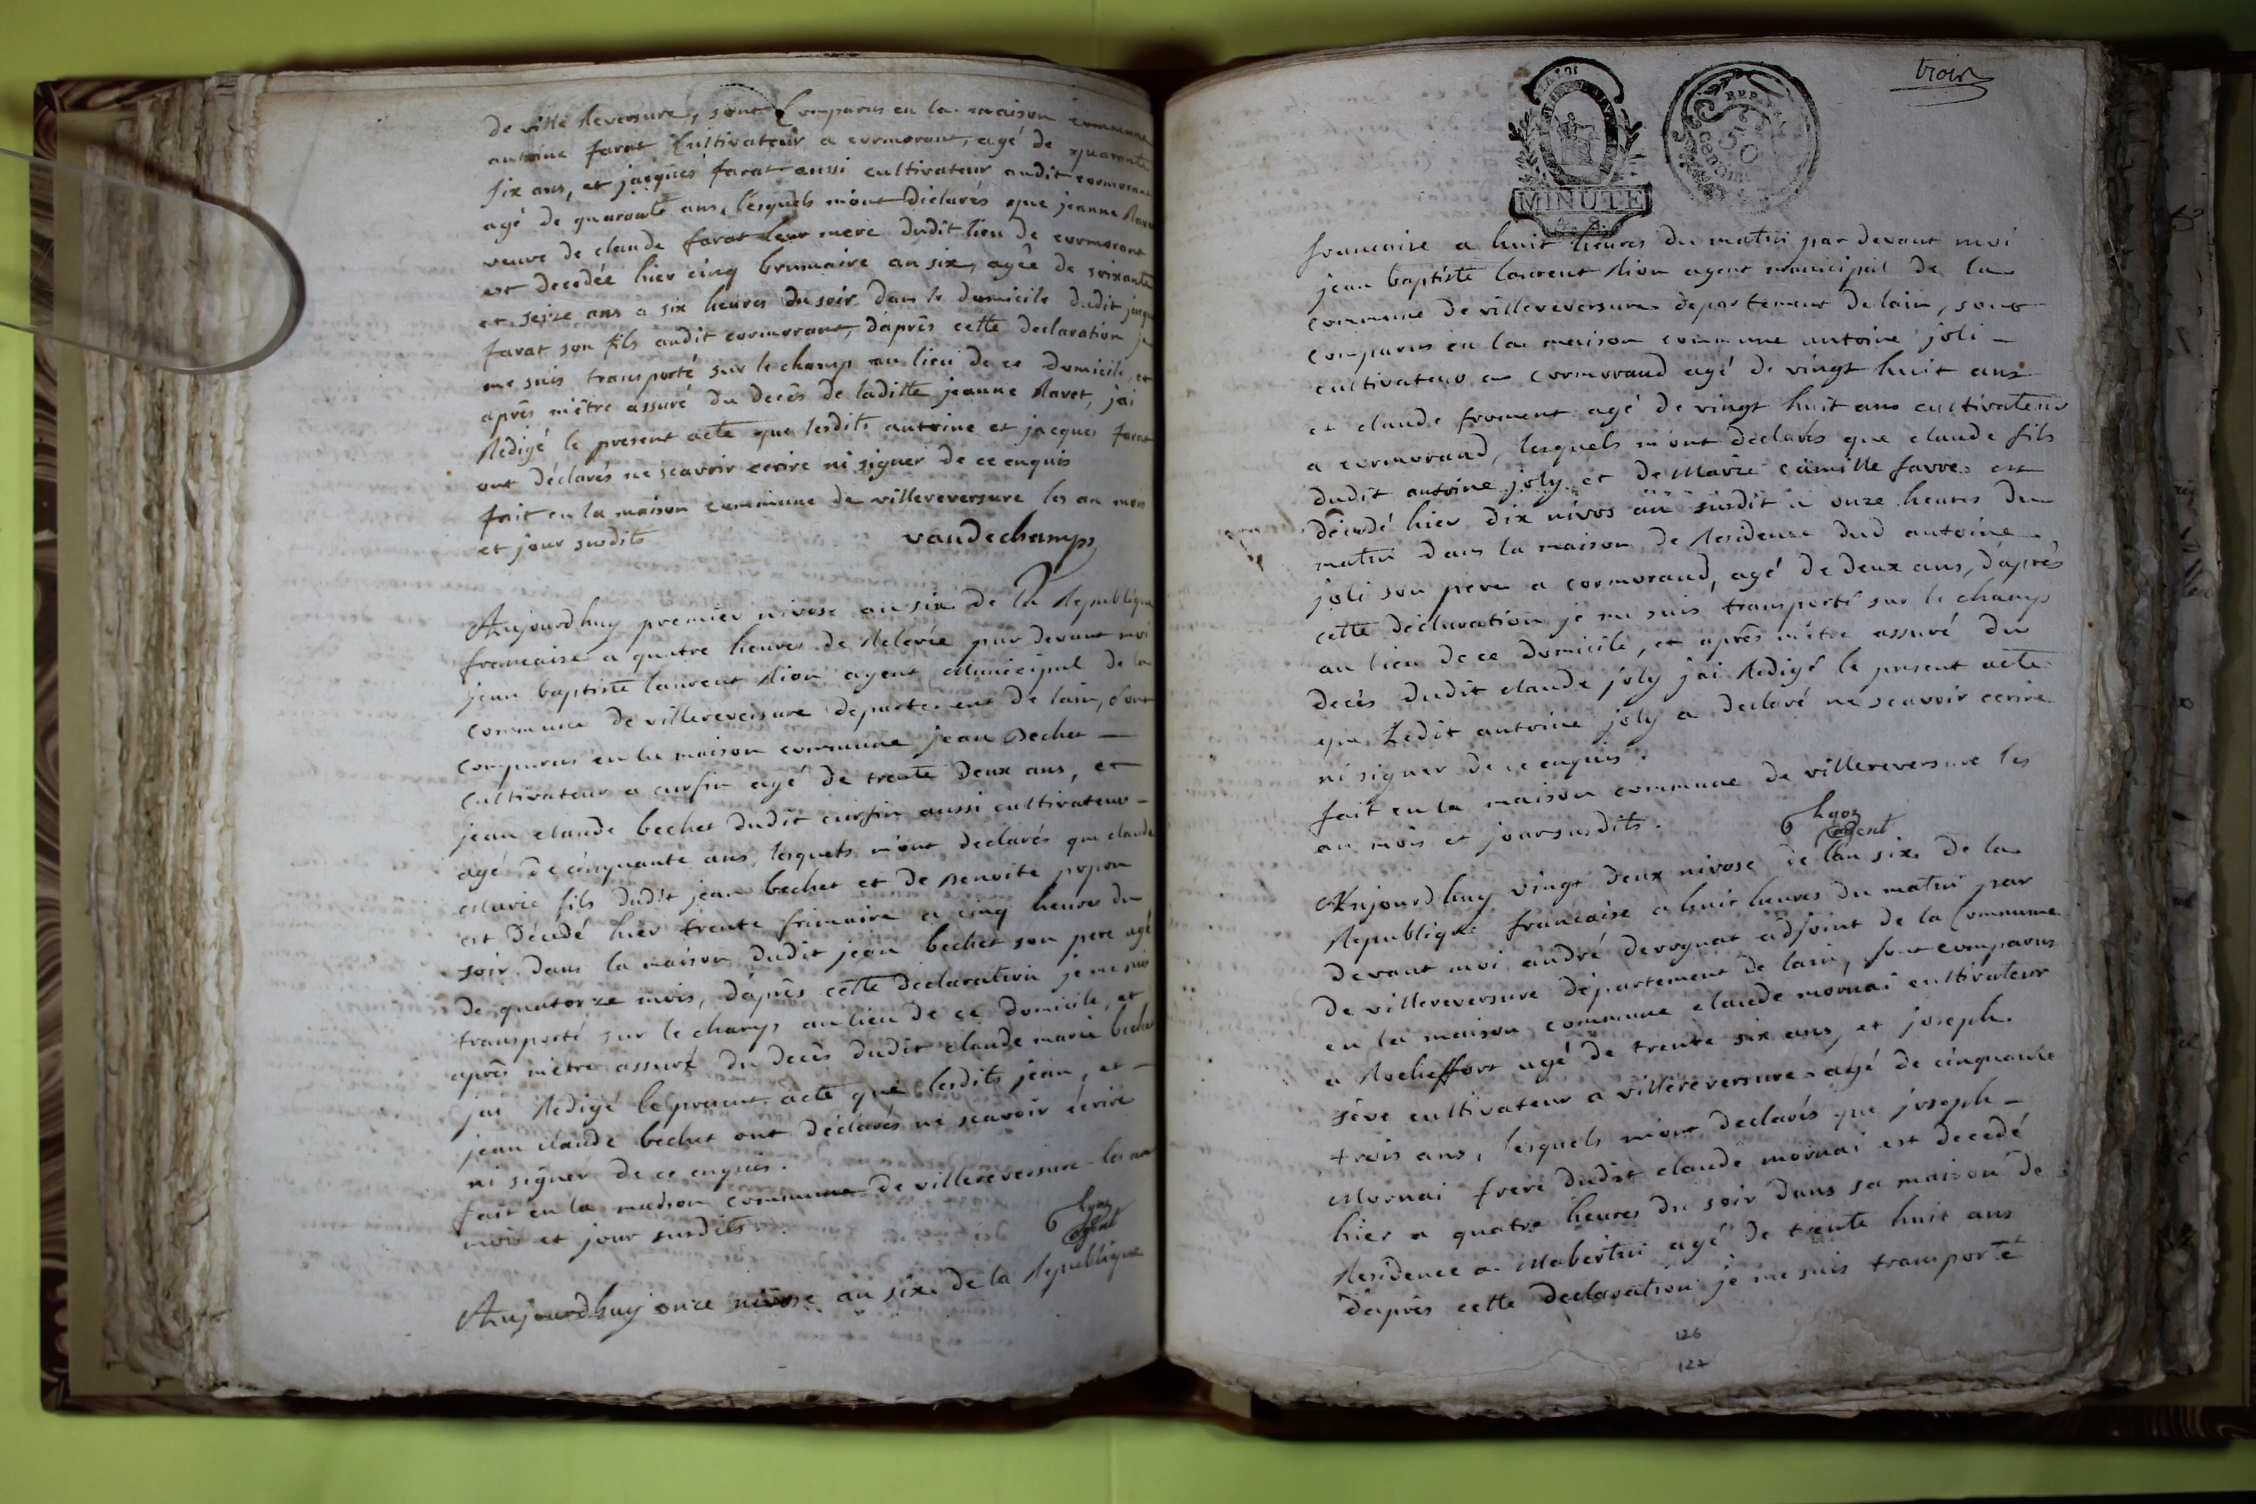 de ville Reversure, sont Comparus en la maison commune
antoine farat Cultivateur a cormorant, agé de quarante
six ans, et jacques farat aussi cultivateur audit cormorant
agé de quarante ans, lesquels m'ont déclarés que jeanne Ravet
veuve de claude farat leur mere dudit lieu de cormorant
est decedée hier cinq brumaire an six, agée de soixante
et seize ans a six heures du soir dans le domicile dudit jacques
farat son fils audit cormorant, d'après cette declaration je
me suis transporté sur le champ au lieu de ce domicile, et
après m'être assuré du decès de laditte jeanne Ravet, j'ai
Redigé le present acte que lesdits antoine et jacques farat
ont déclarés ne scavoir ecrire ni signer de ce enquis
fait en la maison commune de villereversure les an mois
et jour susdits
vaudechamps
Aujourdhuy premier nivose an six de la Republique
francaise a quatre heures de Relevée par devant moi
jean baptiste laurent Rion agent Municipal de la
commune de villereversure departement de lain, sont
comparus en la maison commune jean Bechet
Cultivateur a curfin agé de trente deux ans, et
jean claude bechet dudit curfin aussi cultivateur
agé de cinquante ans, lesquels m'ont declarés que claude
Marie fils dudit jean bechet et de Benoite popon
est décedé hier trente frimaire a cinq heures du
soir dans la maison dudit jean bechet son pere agé
de quatorze mois, d'après cette déclaration je me suis
transporté sur le champ au lieu de ce domicile, et
après m'etre assuré du decès dudit claude marie bechet
jai Redigé le present acte que lesdits jean, et
jean claude bechet ont déclarés ne scavoir écrire
ni signer de ce enquis.
fait en la maison commune de villereversure les an
mois et jour susdits.
agent
Aujourdhuy onze nivose an six de la Republique
trois
MINUTE
50
francaise a huit heures du matin par devant moi
jean baptiste laurent Rion agent municipal de la
commune de villereversure departement de lain, sont
comparus en la maison commune antoine joli
cultivateur a cormoraud agé de vingt huit ans
et claude froment agé de vingt huit ans cultivateur
a cormoraud, lesquels m'ont déclarés que claude fils
dudit antoine joly et de Marie camille favre est
décédé hier dix nivos an susdit a onze heures du
matin dans la maison de Residence dud antoine
joli son pere a cormoraud, agé de deux ans, d'après
cette déclaration je me suis transporté sur le champ
au lieu de ce domicile, et après m'etre assuré du
decès dudit claude joly j'ai Redigé le present acte
que Ledit antoine joly a declaré ne scavoir ecrire
ni signer de ce enquis.
fait en la maison commune de villereversure les
an mois et jour susdits.
agent
Aujourdhuy vingt deux nivose de l'an six de la
Republique francaise a huit heures du matin par
devant moi andré derognat adjoint de la Commune
de villereversure département de lain, sont comparus
en la maison commune claude mornai cultivateur
a Rocheffort agé de trente six ans, et joseph
séve cultivateur a villereversure agé de cinquante
trois ans, lesquels m'ont declarés que joseph
Mornai frere dudit claude mornai est decedé
hier a quatre heures du soir dans sa maison de
Residence a Mabertin agé de trente huit ans
d'après cette declaration je me suis transporté
126
127